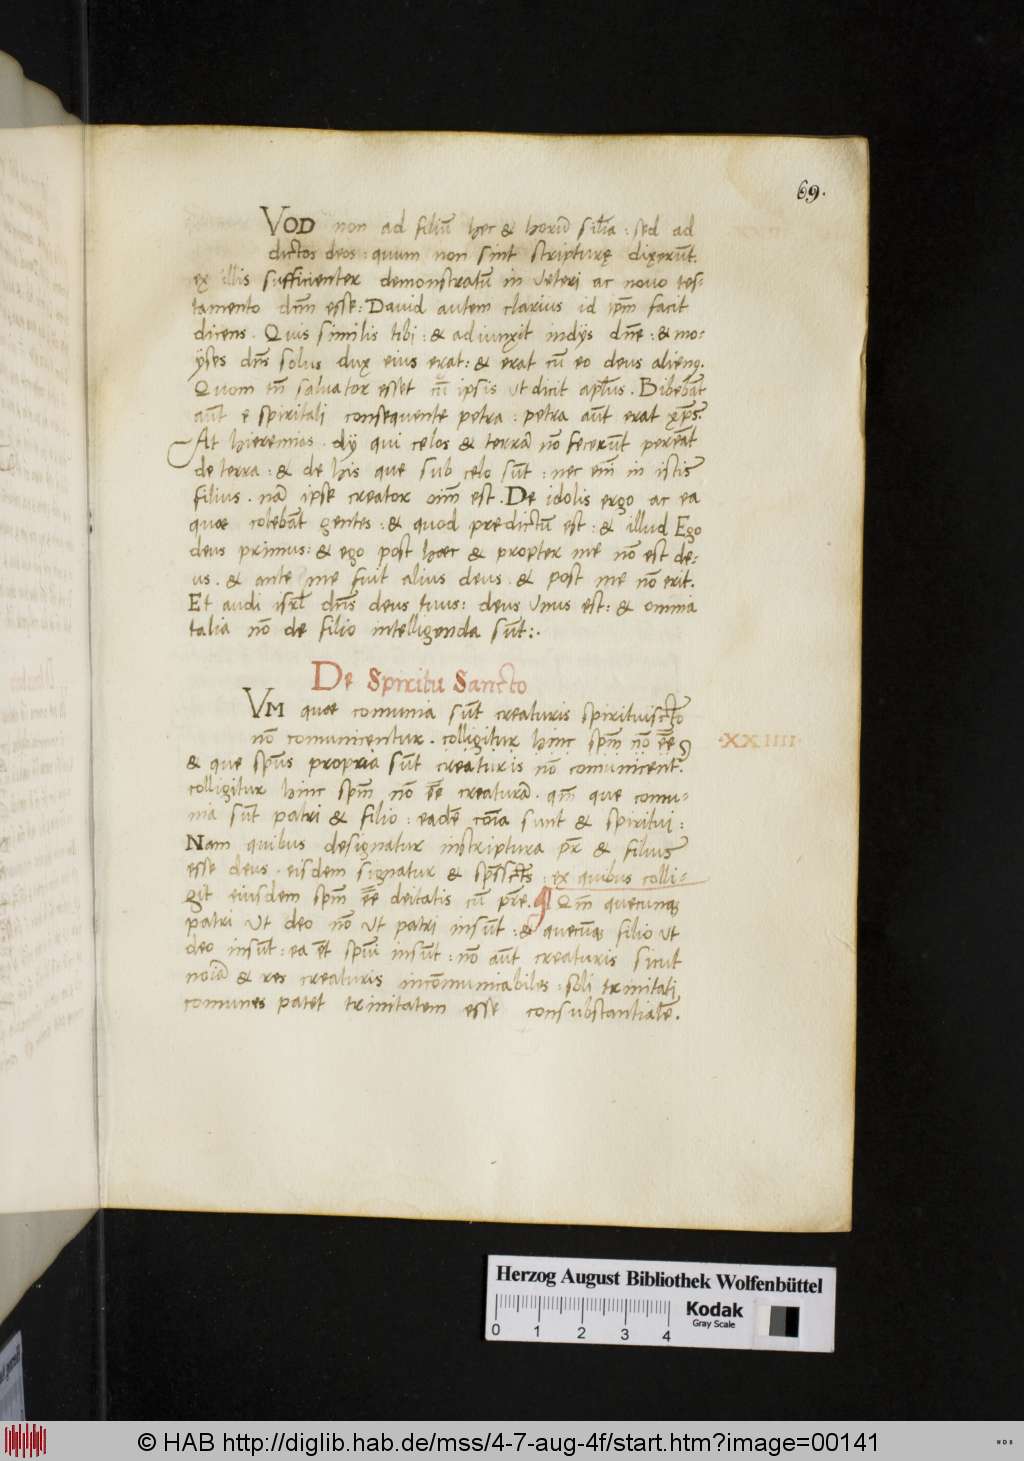 69.
VOD non ad filiū hec & horū sil̄ia : sed ad
dictos deos : quum non sint scripturę dixerūt.
ex illis sufficienter demonstratū in veteri ac novo tes-
tamento dm̄ esse : David autem clarius id ip̄m facit
dicens . Quis similis tibi : & adiunxit indijs dn̄e : & mo-
ÿses dn̄s solus dux eius erat : & erat cū eo deus alienꝯ.
Quom tn̄ salvator esset cū ipsis ut dicit apl̄us . Bibebāt
aūt e spiritali consequente petra : petra aūt erat xp̄s.
At hieremias . dij qui celos & terrā nō fecerūt pereāt
de terra : & de his que sub celo sūt : nec em̄ in istis
filius . nā ipse creator oīm est . De idolis ergo ac ea
quae colebāt gentes : & quod predictū est : & illud Ego
deus primus : & ego post haec & propter me nō est de-
us . & ante me fuit alius deus . & post me nō erit.
Et audi isrl̄ dn̄s deus tuus : deus unus est : & omnia
talia nō de filio intelligenda sūt : .
De Spiritu Sancto
VM quae comunia sūt creaturis spirituiscto
nō comunicentur . colligitur hinc spm̄ nō ēē
·XXIIII·
& que spūs propria sūt creaturis nō comunicent.
colligitur hinc spm̄ nō ēē creaturā . qm̄ que comu-
nia sūt patri & filio : eadē cōīa sunt & spiritui :
Nam quibus designatur inscriptura pr̄ & filius
esse deus . eisdem signatur & sp̄ssct̄s : ex quibus colli-
git eiusdem spm̄ ēē deitatis cū pr̄e . Qm̄ quecunqꝫ
patri ut deo nō ut patri insūt : & quecūqꝫ filio ut
deo insūt : ea ēt spūi insūt : nō aūt creaturis sicut
noīa & res creaturis incōmunicabiles : soli trinitati
comunes patet trinitatem esse consubstantialē .
Herzog August Bibliothek Wolfenbüttel
Kodak
Gray Scale
0 1 2 3 4
© HAB http://diglib.hab.de/mss/4-7-aug-4f/start.htm?image=00141